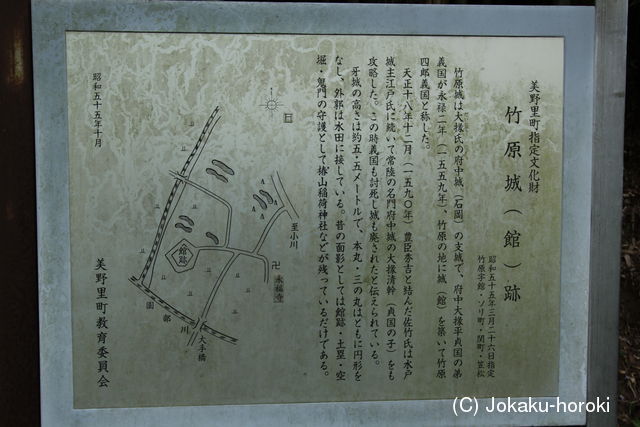 美野里町指定文化財
竹原城（館）跡
昭和五十五年三月二十六日指定
竹原字館・ソリ町・関町・笠松
竹原城は大掾氏の府中城（石岡）の支城で、府中大掾平貞国の弟
義国が永禄二年（一五五九年）、竹原の地に城（館）を築いて竹原
四郎義国と称した。
天正十八年十二月（一五九〇年）豊臣秀吉と結んだ佐竹氏は水戸
城主江戸氏に続いて常陸の名門府中城の大掾清幹（貞国の子）をも
攻略した。この時義国も討死し城も廃されたと伝えられている。
牙城の高さは約五・五メートルで、本丸・三の丸はともに円形を
なし、外郭は水田に接している。昔の面影としては館跡・土塁・空
堀・鬼門の守護として椿山稲荷神社などが残っているだけである。
昭和五十五年十月
至小川
卍 永福寺
館跡
園部川
大手橋
美野里町教育委員会
(C) Jokaku-horoki